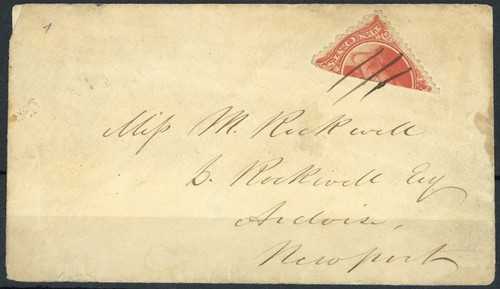 Miss M. Rockwell
S. Rockwell Esq
Ardoise,
Newport